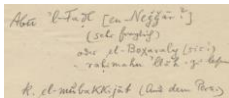 Abū 'l-Faḍl [en-Neǧǧār?]
(sehr fraglich)
oder el-Boxavaly (sic!)
- raḥmahu 'llāh -
K. el-mubakkijāt (Aus dem Pers.)